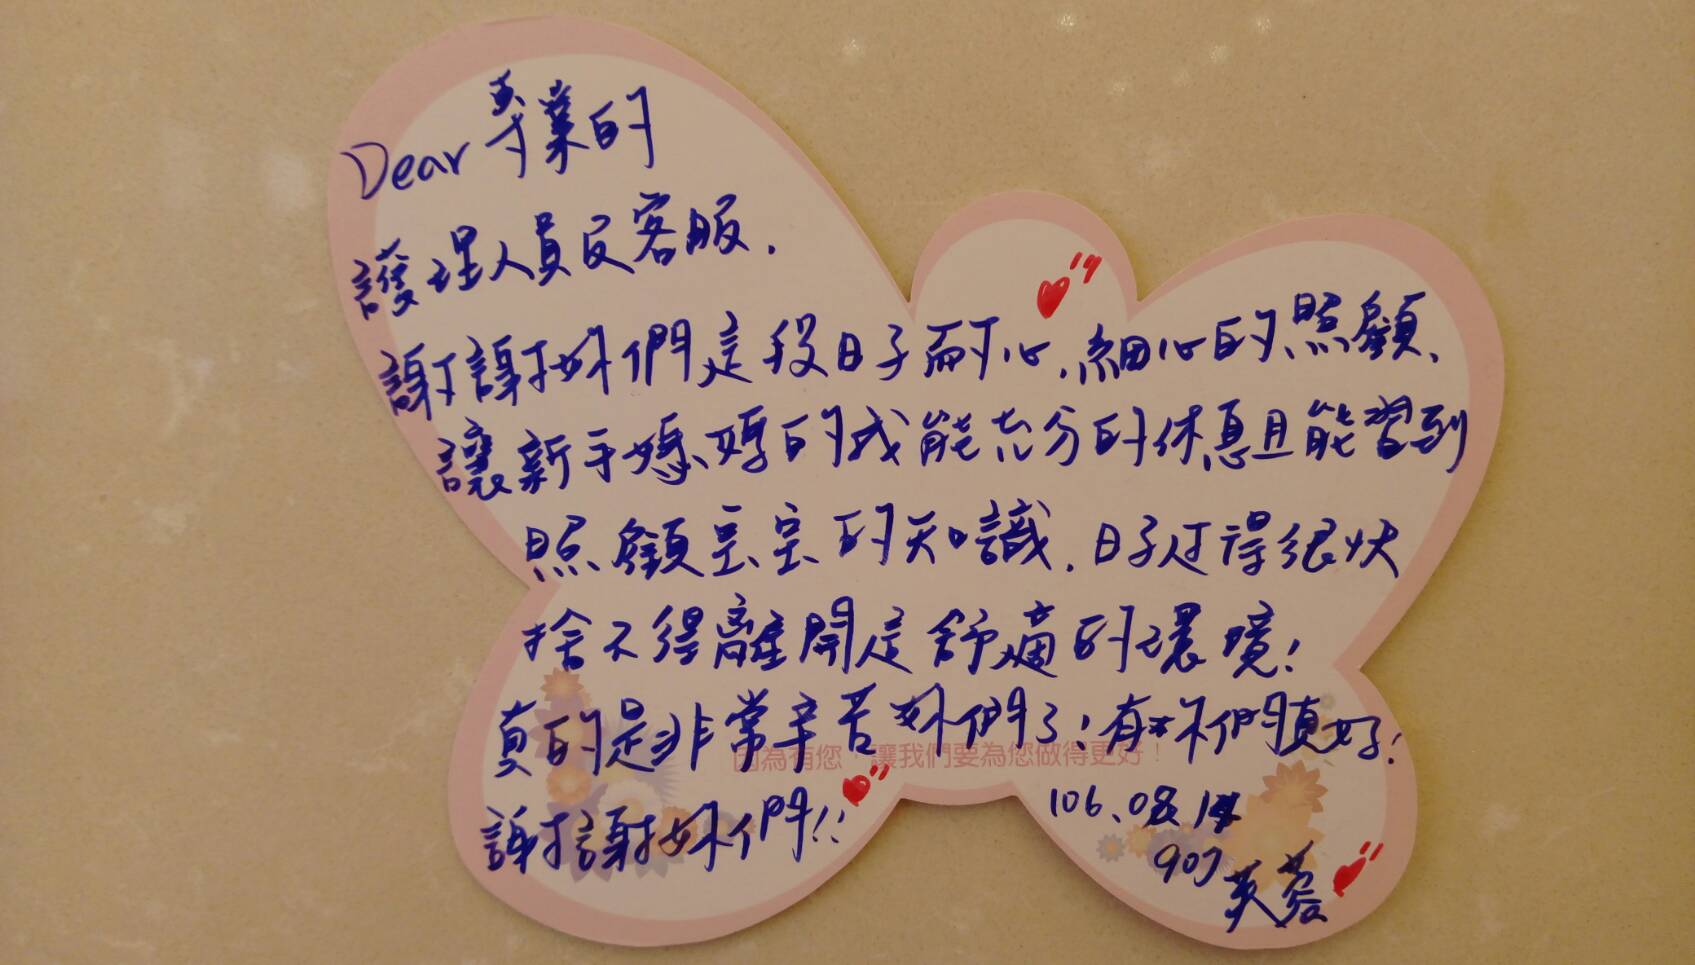 Dear 專業的
護理人員及客服.
謝謝妳們這段日子耐心.細心的照顧.
讓新手媽媽的我能充分的休息且能習到
照顧寶寶的知識.日子過得很快
捨不得離開這舒適的環境!
真的是非常辛苦妳們了!有妳們真好!
因為有您,讓我們要為您做得更好!
謝謝妳們!!
106.08.
907
芙蓉